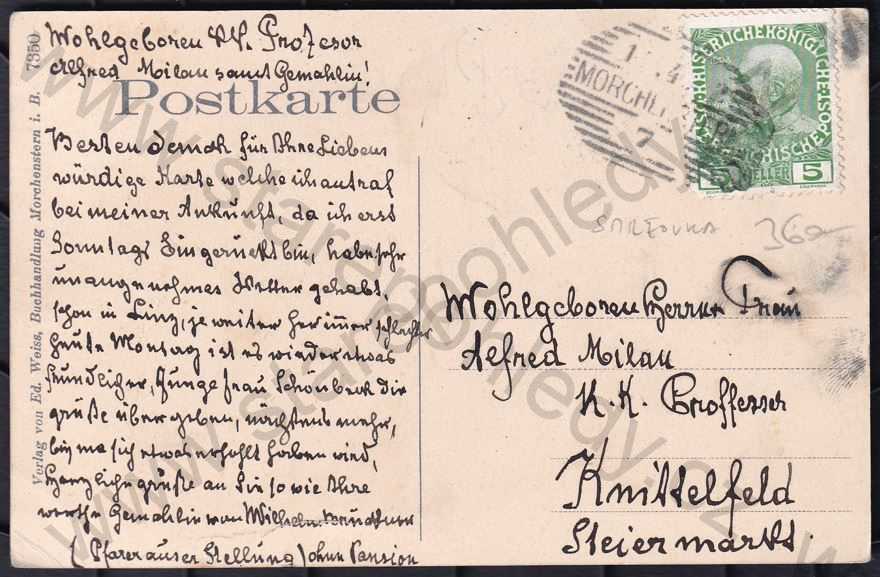 Wohlgeboren Profesor
Alfred Milau samt Gemahlin!
Postkarte
Besten für Ihre Liebens
würdige Karte welche ich antraf
bei meiner Ankunft, da ich erst
Sonntags Eingerückt bin, habe sehr
unangenehmes Wetter gehabt,
schon in Linz, je weiter her immer schlechter
heute Montag ist es wieder etwas
freundlicher, Junge frau Schönbeck die
grüße übergeben, nächstens mehr,
bis ma sich etwas erhohlt haben wird,
Herzliche grüße an Sie so wie Ihre
werthe Gemahlin von Wilhelm
(Pfarer auser Stellung) ohne Pansion
Verlag von Ed. Weiss, Buchhandlung Morchenstern i. B. 7350
1 4
MORCHENSTERN
7
KAISERLICHE KÖNIGLICHE ÖSTERREICHISCHE POST
5 HELLER 5
36
Wohlgeboren Herrn Frau
Alfred Milau
K. K. Proffesser
Knittelfeld
Steiermarkt.
www.starepohledy.cz